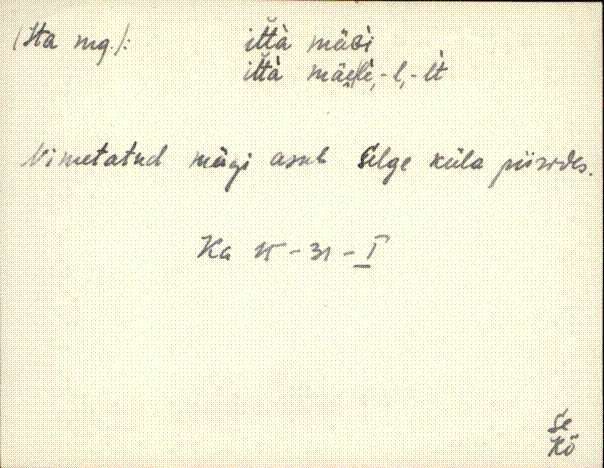 (Ita mg.):
ittà mäɢì
ittà mäelè, -l, -lt
Nimetatud mägi asub Selge küla piirides.
Ka 15-31-I
Se
Kö